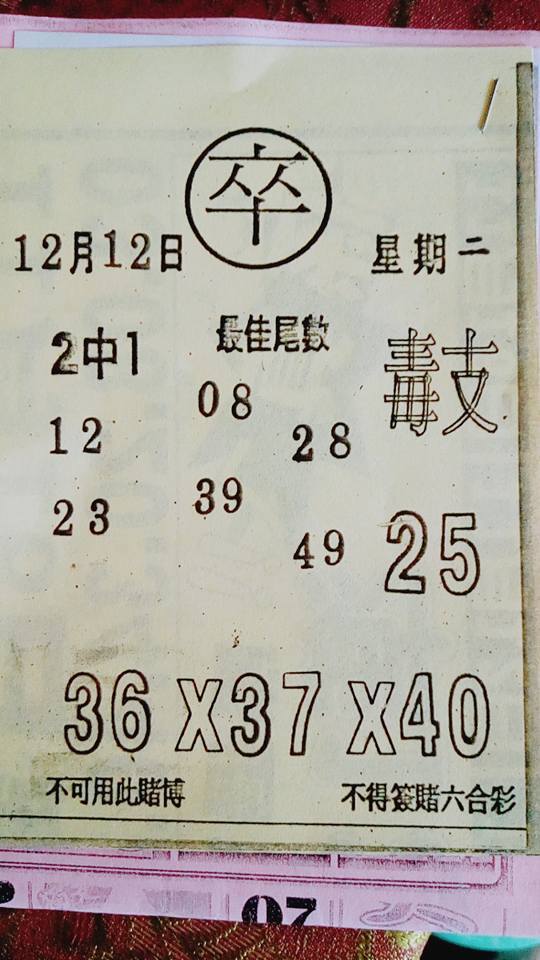 卒
12月12日 星期二
2中1 最佳尾數 毒支
08
12 28
39
23
49 25
36X37X40
不可用此賭博 不得簽賭六合彩
07